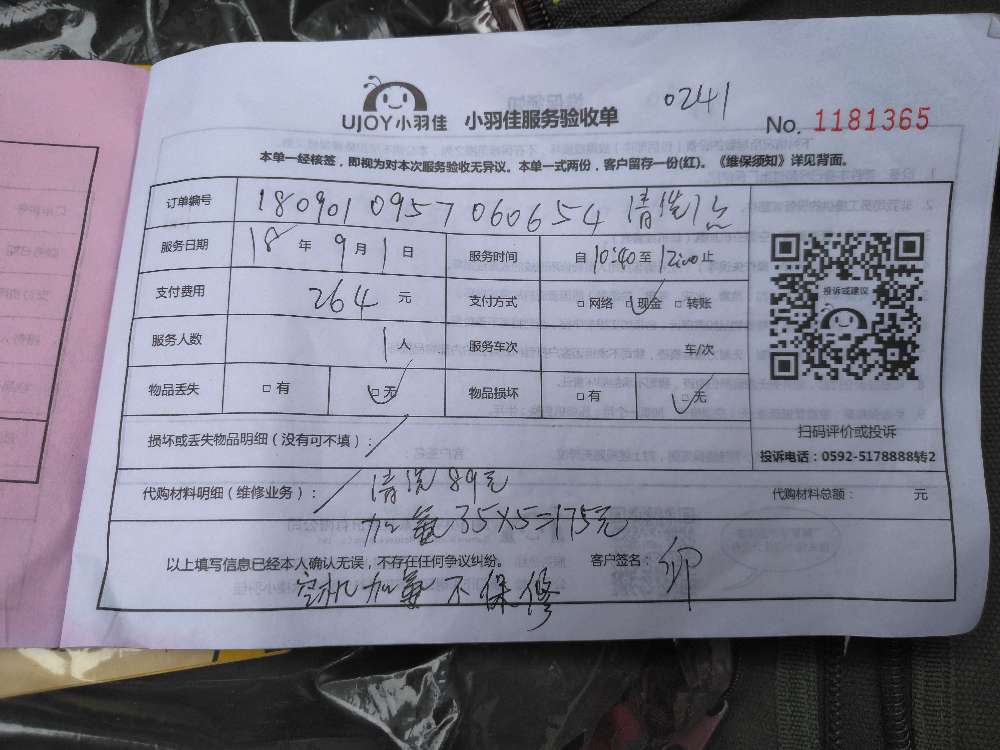 UJOY小羽佳 小羽佳服务验收单 0241 No. 1181365
本单一经核签，即视为对本次服务验收无异议。本单一式两份，客户留存一份(红)。《维保须知》详见背面。
订单编号 180901 0957 060654 清洗1台
服务日期 18 年 9 月 1 日 服务时间 自 10:40 至 12:00 止
支付费用 264 元 支付方式 □ 网络 □ 现金 □ 转账
服务人数 1 人 服务车次 车/次
物品丢失 □ 有 □ 无 物品损坏 □ 有 □ 无
投诉或建议
扫码评价或投诉
投诉电话：0592-5178888转2
损坏或丢失物品明细（没有可不填）：
代购材料明细（维修业务）： 清洗89元 代购材料总额： 元
加氟35×5=175元
以上填写信息已经本人确认无误，不存在任何争议纠纷。 客户签名：
空机加氟不保修